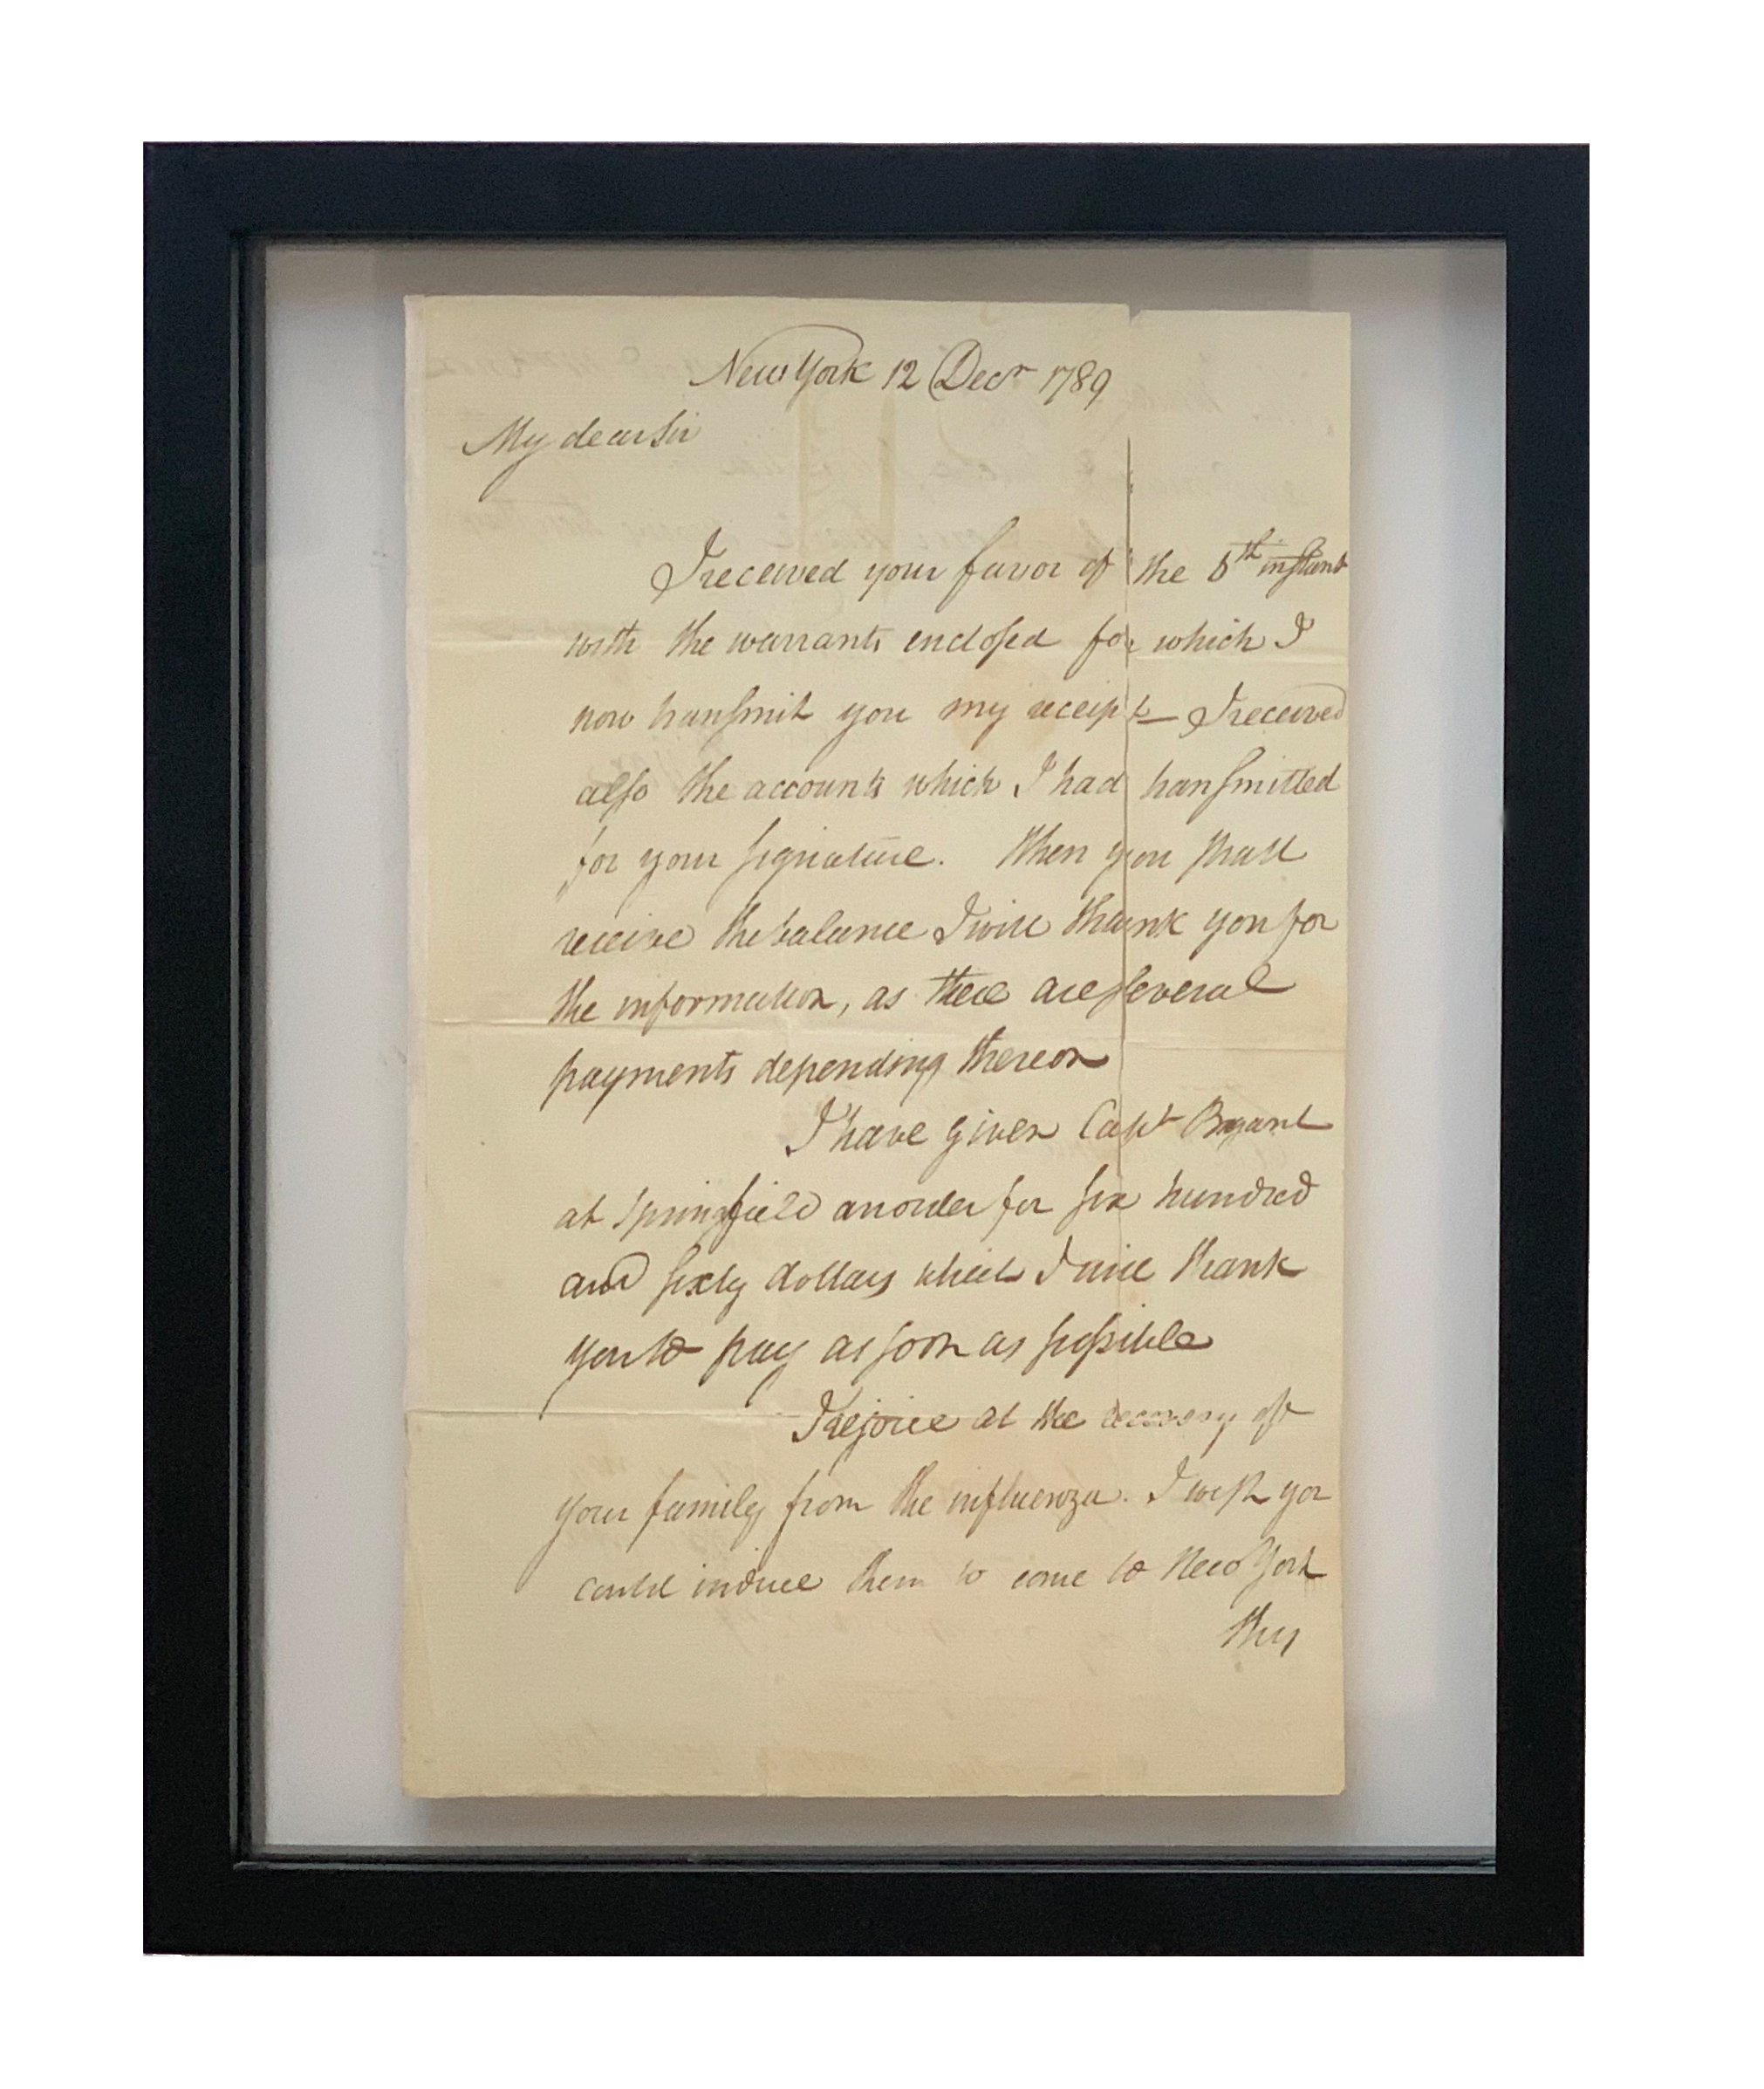 New York 12 Decr 1789
My dear sir
I received your favor of the 8th instant
with the warrants enclosed for which I
now transmit you my receipt — I received
also the accounts which I had transmitted
for your signature. When you shall
receive the balance I will thank you for
the information, as there are several
payments depending thereon
I have given Capt Bryant
at Springfield an order for six hundred
and sixty dollars which I will thank
you to pay as soon as possible
I rejoice at the recovery of
your family from the influenza. I wish you
could induce them to come to New York
They